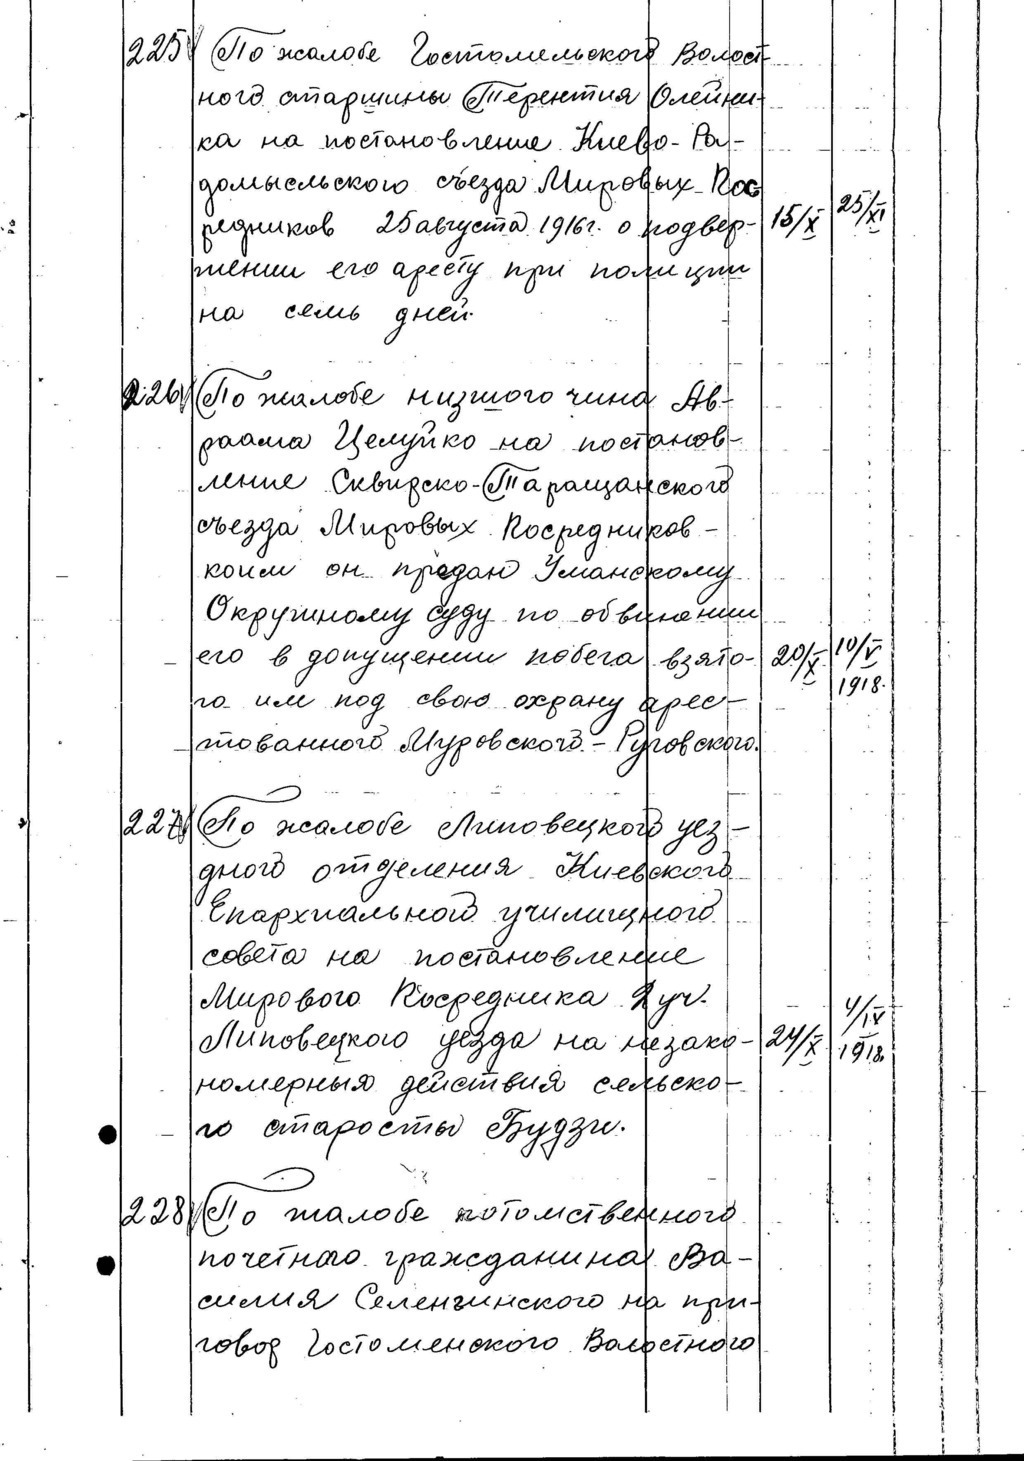 225 По жалобе Гостомельского Волост-
ного старшины Терентия Олейни-
ка на постановление Киево-Ра-
домысльского съезда Мировых Пос
редников 25 августа 1916 г. о подвер- 15/X 25/XI
жении его аресту при полиции
на семь дней.
226 По жалобе низшого чина Ав-
раама Целуйко на постанов-
ление Сквирско-Таращанского
съезда Мировых Посредников -
коим он предан Уманскому
Окружному суду по обвинении
его в допущении побега взято- 20/X 10/V
го им под свою охрану арес- 1918.
тованного Муровского-Руговского.
227 По жалобе Липовецкого уез-
дного отделения Киевского
Епархиального училищного
совета на постановление
Мирового Посредника 2 уч.
Липовецкого уезда на незако- 24/X 4/IV 1918.
номерныя действия сельско-
го старосты Будзи.
228 По жалобе потомственного
почетнаго гражданина Ва-
силия Селенгинского на при-
говор Гостоменского Волостного